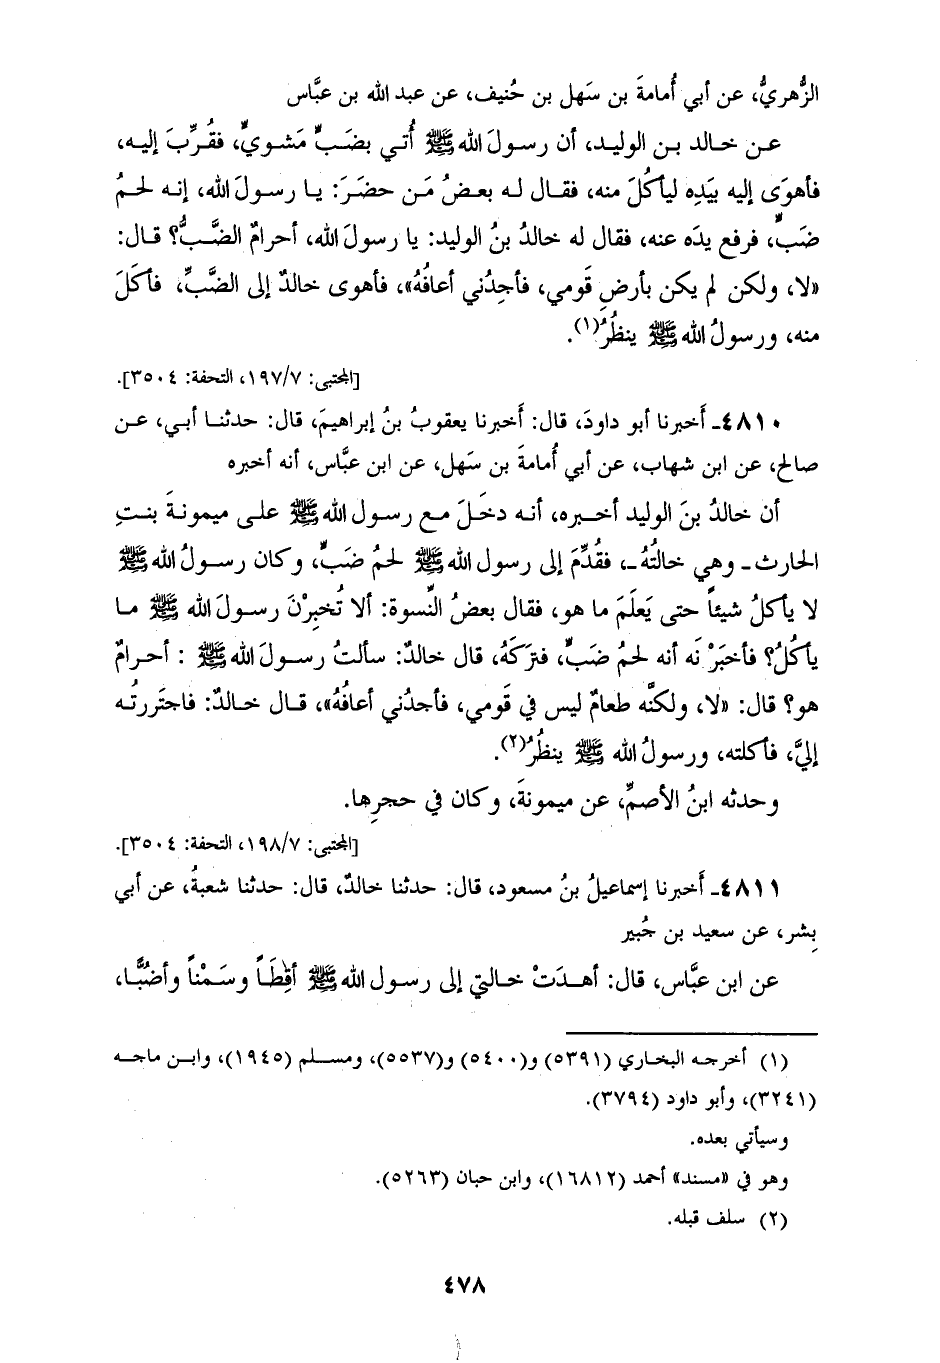 الزُّهريُّ، عن أبي أُمامةَ بن سَهل بن حُنيف، عن عبد الله بن عبَّاس
عن خالد بن الوليد، أن رسولَ الله ﷺ أُتي بضَبٍّ مَشويٍّ، فقُرِّبَ إليه،
فأهوَى إليه بيَدِه ليأكُلَ منه، فقال له بعضُ مَن حضَرَ: يا رسولَ الله، إنه لحمُ
ضَبٍّ، فرفع يدَه عنه، فقال له خالدُ بنُ الوليد: يا رسولَ الله، أحرامٌ الضَّبُّ؟ قال:
«لا، ولكن لم يكن بأرضِ قَومي، فأجِدُني أعافُهُ»، فأهوى خالدٌ إلى الضَّبِّ، فأكَلَ
منه، ورسولُ الله ﷺ ينظُرُ(١).
[المجتبى: ١٩٧/٧، التحفة: ٣٥٠٤].
٤٨١٠ـ أَخبرنا أبو داودَ، قال: أَخبرنا يعقوبُ بنُ إبراهيمَ، قال: حدثنا أبي، عن
صالحٍ، عن ابن شهاب، عن أبي أُمامةَ بن سَهل، عن ابن عبَّاس، أنه أخبره
أن خالدُ بنَ الوليد أخبره، أنه دخَلَ مع رسول الله ﷺ على ميمونةَ بنتِ
الحارث ـ وهي خالتُهُ ـ، فقُدِّمَ إلى رسول الله ﷺ لحمُ ضَبٍّ، وكان رسولُ الله ﷺ
لا يأكلُ شيئاً حتى يَعلَمَ ما هو، فقال بعضُ النِّسوة: ألا تُخبِرْنَ رسولَ الله ﷺ ما
يأكُلُ؟ فأخبَرْنَه أنه لحمُ ضَبٍّ، فترَكَهُ، قال خالدٌ: سألتُ رسولَ الله ﷺ : أحرامٌ
هو؟ قال: «لا، ولكنَّه طعامٌ ليس في قَومي، فأجدُني أعافُهُ»، قال خالدٌ: فاجتَررتُه
إليَّ، فأكلته، ورسولُ الله ﷺ ينظُرُ(٢).
وحدثه ابنُ الأصمِّ، عن ميمونةَ، وكان في حجرِها.
[المجتبى: ١٩٨/٧، التحفة: ٣٥٠٤].
٤٨١١ـ أَخبرنا إسماعيلُ بنُ مسعود، قال: حدثنا خالدٌ، قال: حدثنا شعبةُ، عن أبي
بِشر، عن سعيد بن جُبير
عن ابن عبَّاس، قال: أهدَتْ خالتي إلى رسول الله ﷺ أَقِطاً وسَمْناً وأضُبًّا،
(١) أخرجه البخاري (٥٣٩١) و(٥٤٠٠) و(٥٥٣٧)، ومسلم (١٩٤٥)، وابن ماجه
(٣٢٤١)، وأبو داود (٣٧٩٤).
وسيأتي بعده.
وهو في «مسند» أحمد (١٦٨١٢)، وابن حبان (٥٢٦٣).
(٢) سلف قبله.
٤٧٨